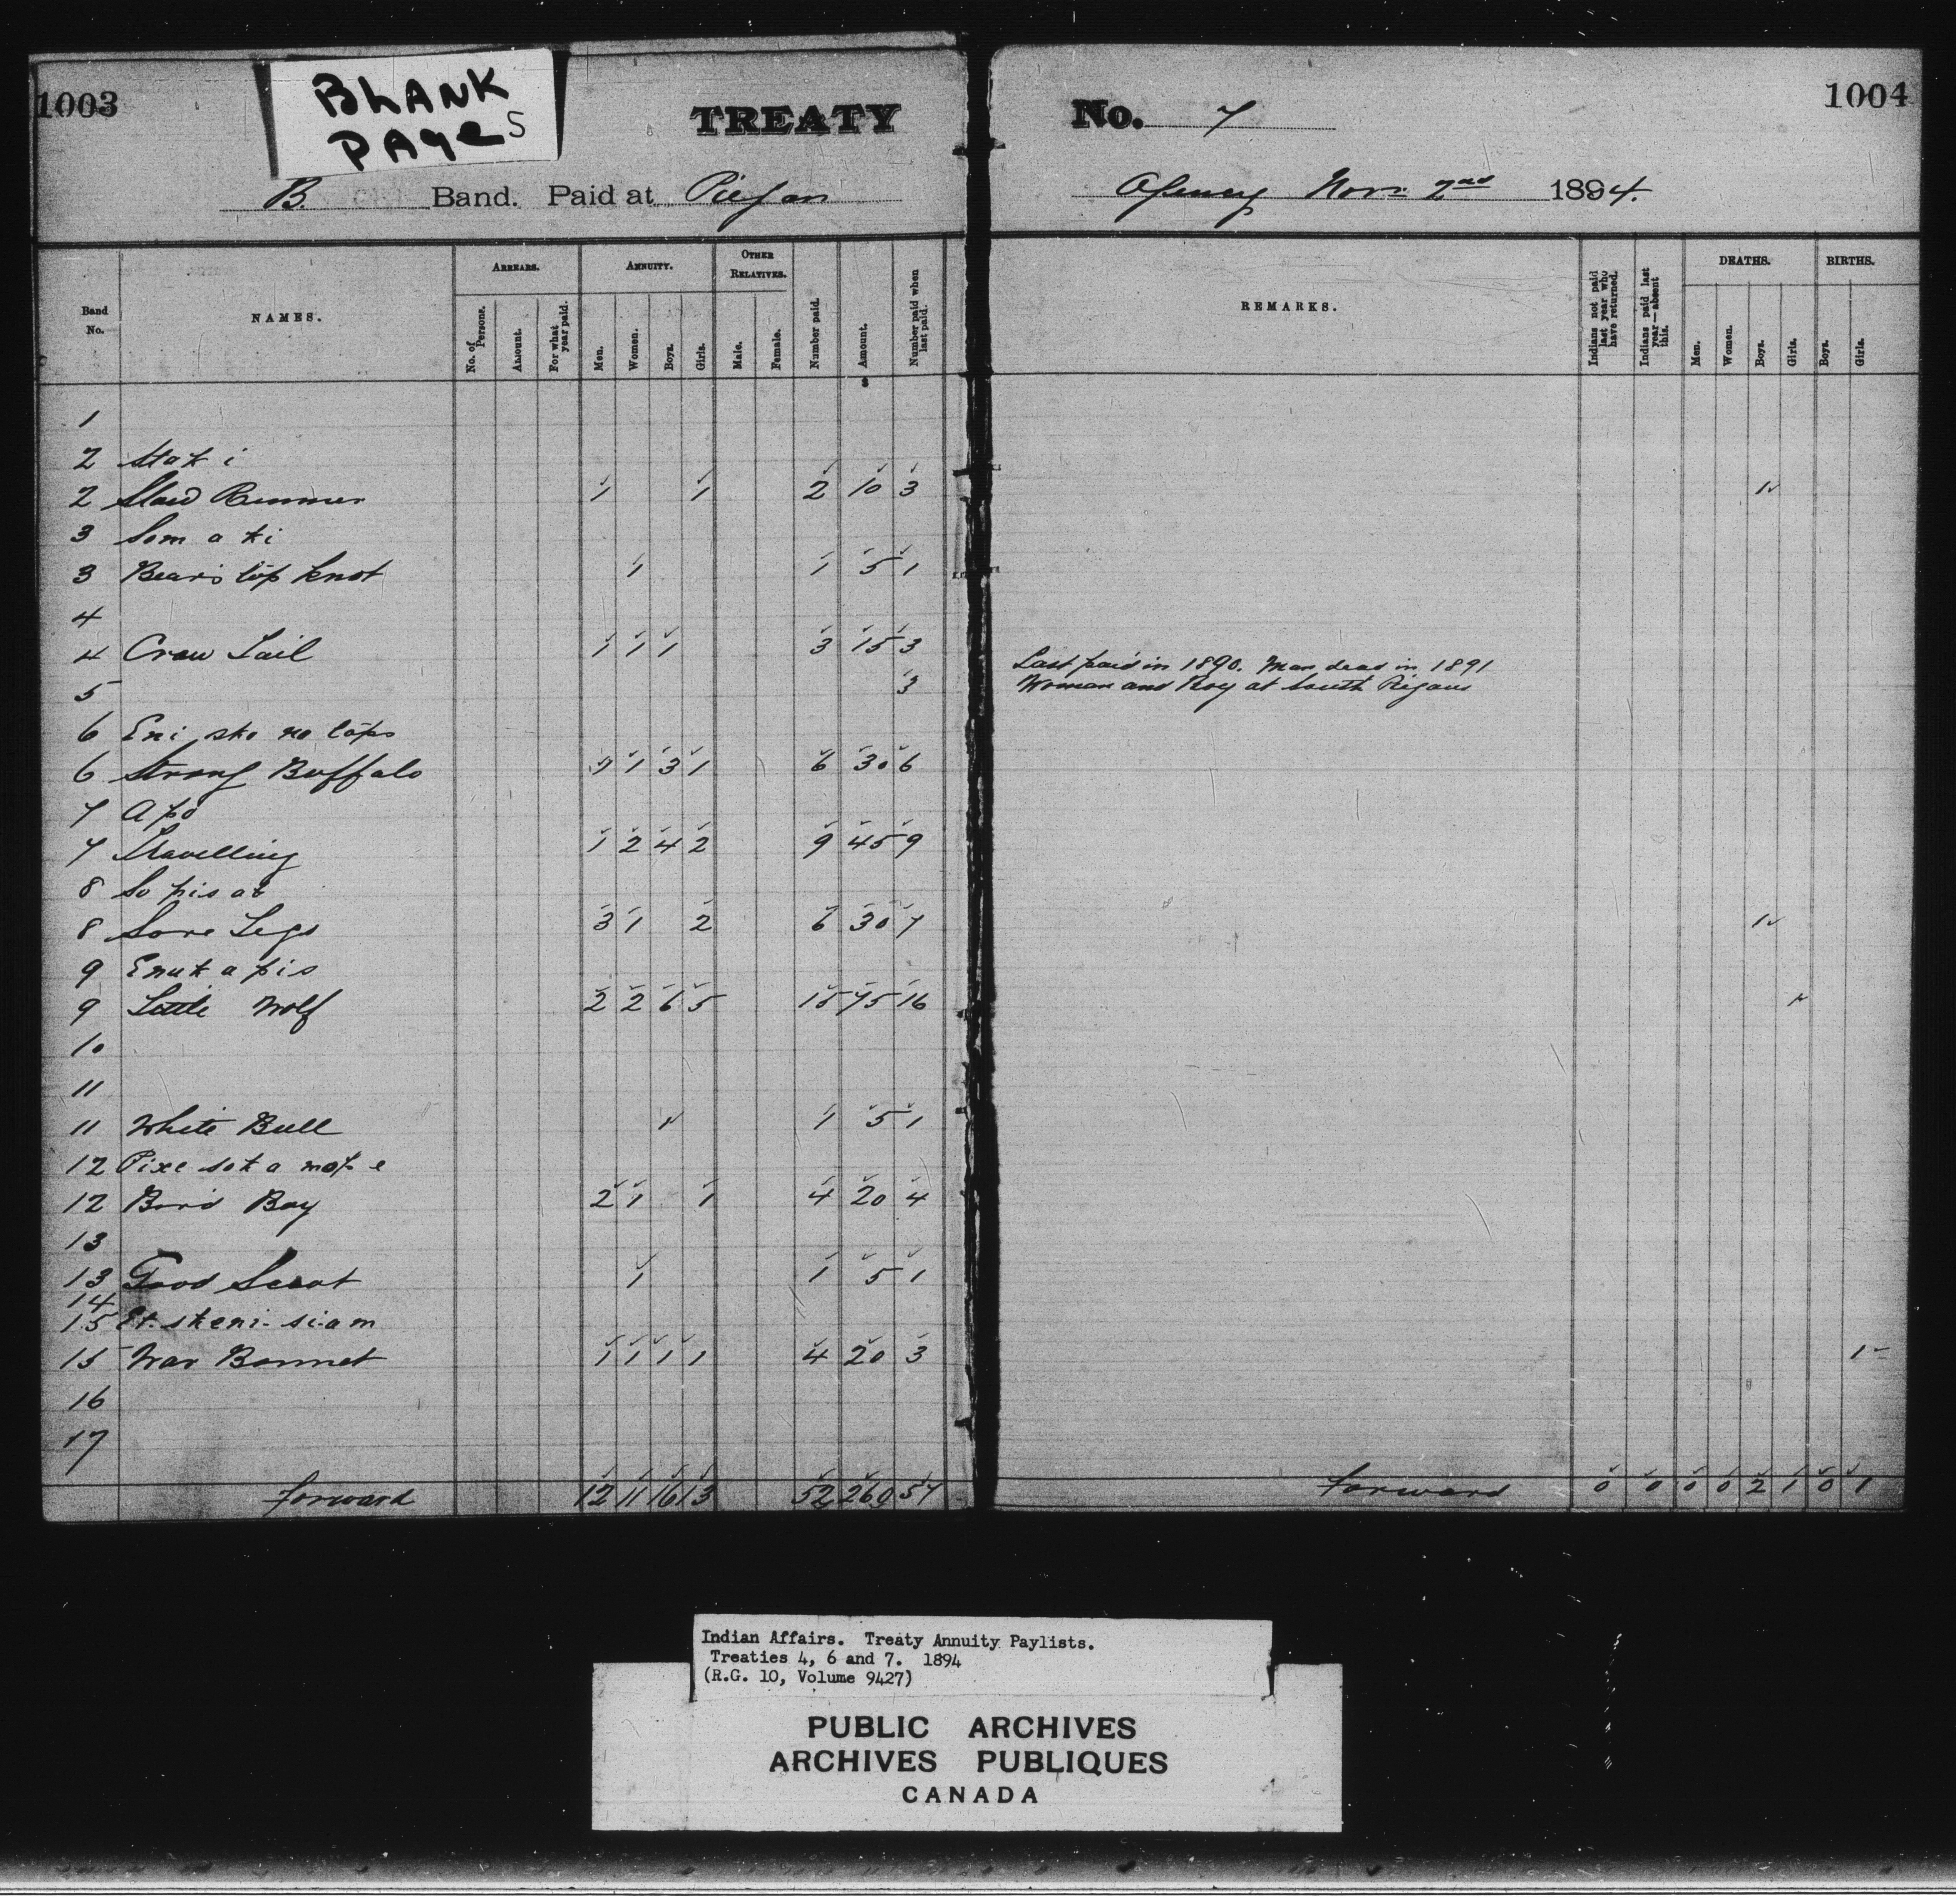 1003
BLANK
PAGES
TREATY No. 7
1004
B. Band. Paid at Piegan Agency Nov. 2nd 1894.
Band No.
NAMES.
ARREARS.
No. of Persons.
Amount.
For what year paid.
ANNUITY.
Men.
Women.
Boys.
Girls.
OTHER RELATIVES.
Male.
Female.
Number paid.
Amount.
Number paid when last paid.
REMARKS.
Indians not paid last year who have returned.
Indians paid last year—absent this.
DEATHS.
Men.
Women.
Boys.
Girls.
BIRTHS.
Boys.
Girls.
1
2 Stak i
2 Runner 1 1 2 10 3 1
3 Som a ki
3 Bear's top knot 1 1 5 1
4
4 Crow Tail 1 1 1 3 15 3
5 3 Last paid in 1890. Man dead in 1891
Woman and Boy at South Pigans
6 Eni sko na tops
6 Strong Buffalo 1 1 3 1 6 30 6
7 Apo
7 Travelling 1 2 4 2 9 45 9
8 So pis at
8 Sore Legs 3 1 2 6 30 7 1
9 Enuk a pis
9 Little Wolf 2 2 6 5 15 75 16 1
10
11
11 White Bull 1 1 5 1
12 Pixe sok a mop e
12 Bird Boy 2 1 1 4 20 4
13
13 Good Scout 1 1 5 1
14
15 Et. skeni. si.am
15 War Bonnet 1 1 1 1 4 20 3 1
16
17
forward 12 11 16 13 52 260 57 forward 0 0 0 0 2 1 0 1
Indian Affairs. Treaty Annuity Paylists.
Treaties 4, 6 and 7. 1894
(R.G. 10, Volume 9427)
PUBLIC ARCHIVES
ARCHIVES PUBLIQUES
CANADA